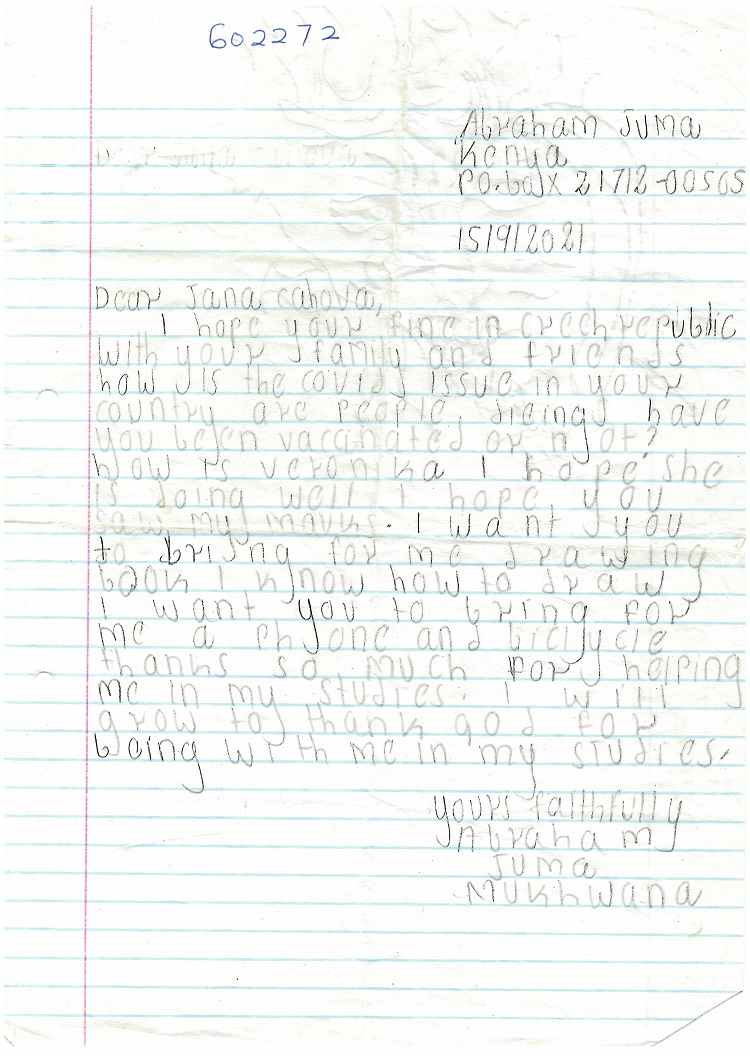 602272
Abraham Juma
Kenya
P.O. box 21712-00505
15/9/2021
Dear Jana cahova,
I hope your fine in crech republic
with your family and friends
how is the covid issue in your
country are people dieing have
you been vaccinated or not?
how is veronika I hope she
is doing well I hope you
saw my marks. I want you
to bring for me drawing
book I know how to draw
I want you to bring for
me a phone and bicycle
thanks so much for helping
me in my studies. I will
grow to thank god for
being with me in my studies.
yours faithfully
Abraham
Juma
Mukhwana